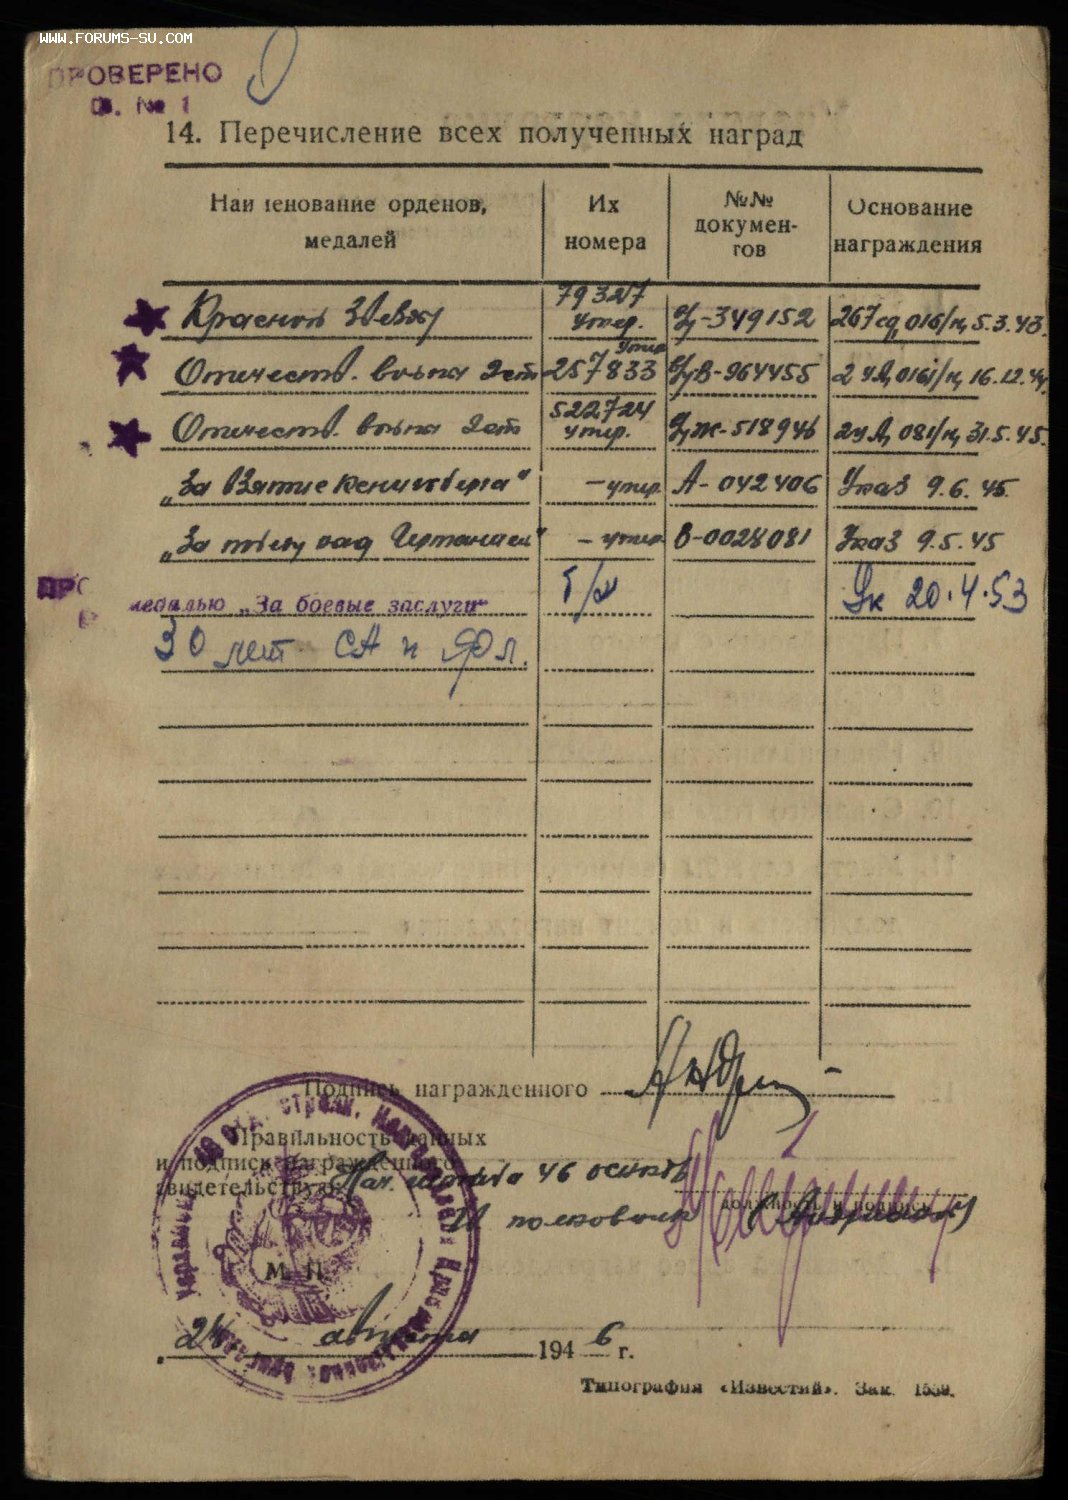 WWW.FORUMS-SU.COM
ПРОВЕРЕНО
№ 1
14. Перечисление всех полученных наград
Наименование орденов, медалей
Их номера
№№ документов
Основание награждения
Красной Звезды 79327 утер. Ц-349152 267 сд 016/н 5.3.43.
Отечеств. война 2 ст 257833 утер ЦВ-964455 2 УА 016/н 16.12.44
Отечеств. война 2 ст 522724 утер. ЦЖ-518946 2 УА 081/н 31.5.45.
„За Взятие Кенигсберга" - утер А-042406 Указ 9.6.45
„За победу над Германией" - утер В-0028081 Указ 9.5.45
медалью „За боевые заслуги" Б/н Ук 20.4.53
30 лет СА и Фл.
Подпись награжденного
Правильность данных
и подписи награжденного
свидетельствую: Нач. штаба 46
полковник
должность и подпись
М. П.
24 августа 1946 г.
Типография «Известий». Зак. 1539.